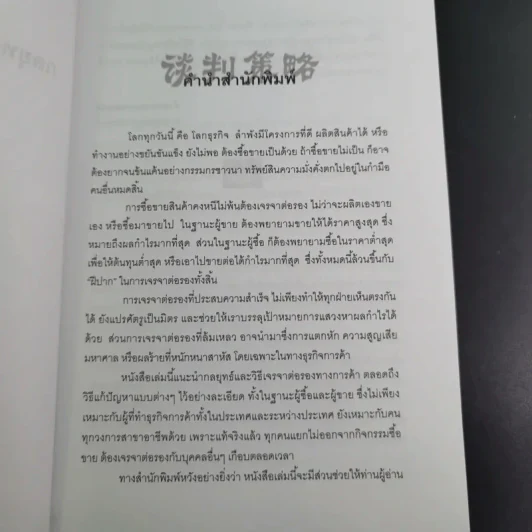 谈判策略
คำนำสำนักพิมพ์
โลกทุกวันนี้ คือ โลกธุรกิจ ลำพังมีโครงการที่ดี ผลิตสินค้าได้ หรือ
ทำงานอย่างขยันขันแข็ง ยังไม่พอ ต้องซื้อขายเป็นด้วย ถ้าซื้อขายไม่เป็น ก็อาจ
ต้องยากจนข้นแค้นอย่างกรรมกรชาวนา ทรัพย์สินความมั่งคั่งตกไปอยู่ในกำมือ
คนอื่นหมดสิ้น
การซื้อขายสินค้าคงหนีไม่พ้นต้องเจรจาต่อรอง ไม่ว่าจะผลิตเองขาย
เอง หรือซื้อมาขายไป ในฐานะผู้ขาย ต้องพยายามขายให้ได้ราคาสูงสุด ซึ่ง
หมายถึงผลกำไรมากที่สุด ส่วนในฐานะผู้ซื้อ ก็ต้องพยายามซื้อในราคาต่ำสุด
เพื่อให้ต้นทุนต่ำสุด หรือเอาไปขายต่อได้กำไรมากที่สุด ซึ่งทั้งหมดนี้ล้วนขึ้นกับ
“ฝีปาก” ในการเจรจาต่อรองทั้งสิ้น
การเจรจาต่อรองที่ประสบความสำเร็จ ไม่เพียงทำให้ทุกฝ่ายเห็นตรงกัน
ได้ ยังแปรศัตรูเป็นมิตร และช่วยให้เราบรรลุเป้าหมายการแสวงหาผลกำไรได้
ด้วย ส่วนการเจรจาต่อรองที่ล้มเหลว อาจนำมาซึ่งการแตกหัก ความสูญเสีย
มหาศาล หรือผลร้ายที่หนักหนาสาหัส โดยเฉพาะในทางธุรกิจการค้า
หนังสือเล่มนี้แนะนำกลยุทธ์และวิธีเจรจาต่อรองทางการค้า ตลอดถึง
วิธีแก้ปัญหาแบบต่างๆ ไว้อย่างละเอียด ทั้งในฐานะผู้ซื้อและผู้ขาย ซึ่งไม่เพียง
เหมาะกับผู้ที่ทำธุรกิจการค้าทั้งในประเทศและระหว่างประเทศ ยังเหมาะกับคน
ทุกวงการสาขาอาชีพด้วย เพราะแท้จริงแล้ว ทุกคนแยกไม่ออกจากกิจกรรมซื้อ
ขาย ต้องเจรจาต่อรองกับบุคคลอื่นๆ เกือบตลอดเวลา
ทางสำนักพิมพ์หวังอย่างยิ่งว่า หนังสือเล่มนี้จะมีส่วนช่วยให้ท่านผู้อ่าน